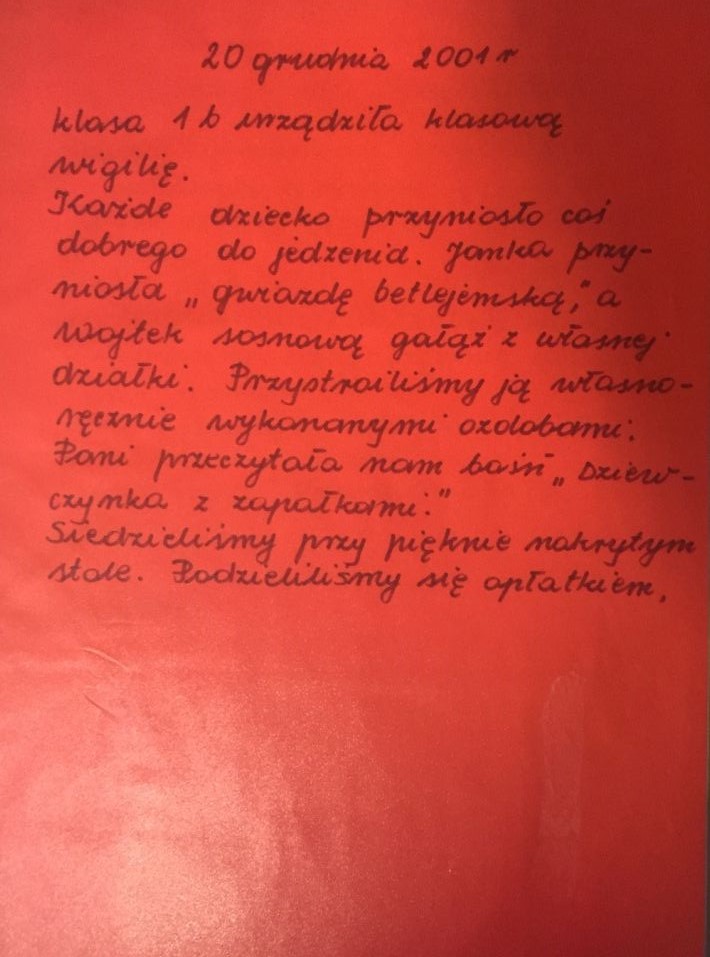 20 grudnia 2001 r
klasa 1 b urządziła klasową
wigilię.
Każde dziecko przyniosło coś
dobrego do jedzenia. Janka przy-
niosła „gwiazdę betlejemską," a
Wojtek sosnową gałąź z własnej
działki. Przystroiliśmy ją własno-
ręcznie wykonanymi ozdobami.
Pani przeczytała nam baśń „Dziew-
czynka z zapałkami."
Siedzieliśmy przy pięknie nakrytym
stole. Podzieliliśmy się opłatkiem,